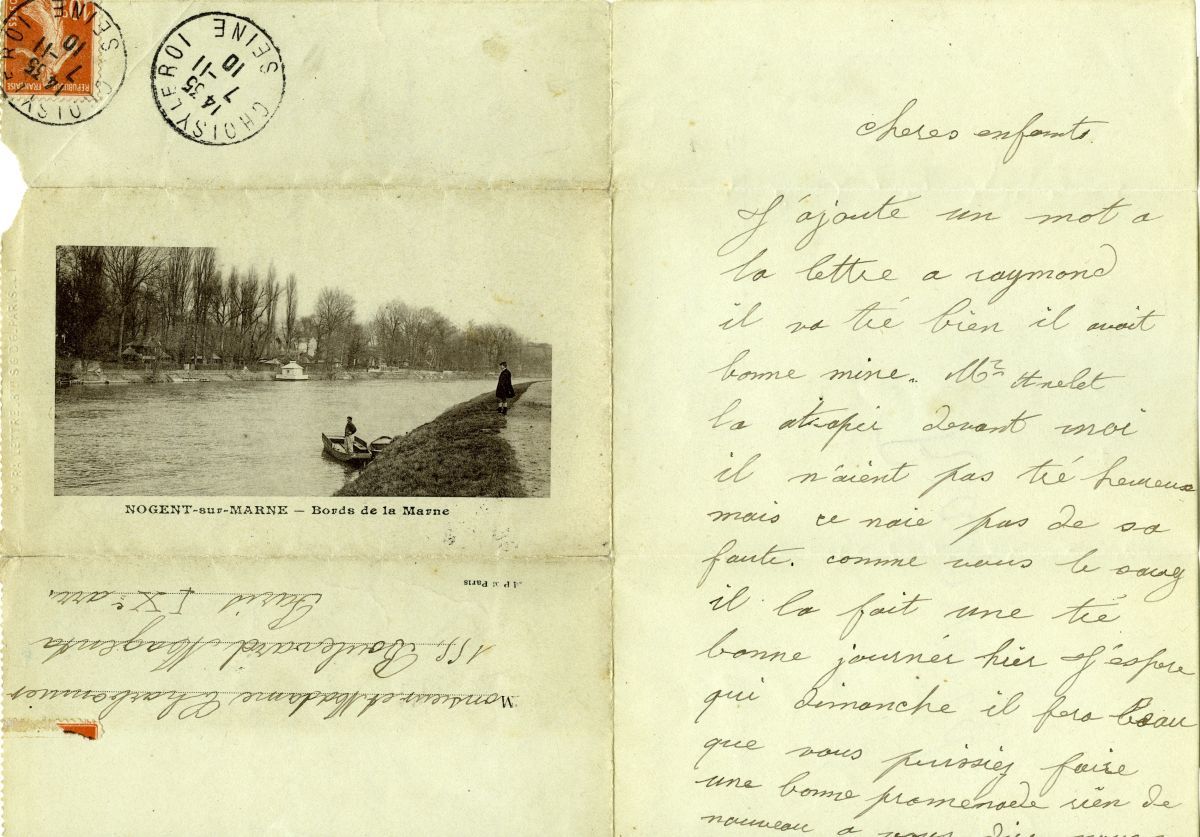 CHOISY LE ROI
14 35
7 -11
10
SEINE
CHOISY LE ROI
14 35
7 -11
10
SEINE
REPUBLIQUE FRANÇAISE
NOGENT-sur-MARNE — Bords de la Marne
A P Paris
Monsieur et Madame Charbonnier
155, Boulevard Magenta
Paris IXe arr.
cheres enfants.
J'ajoute un mot a
la lettre a raymond
il va tré bien il avoit
bonne mine. Mr
la devant moi
il n'aient pas tré hereux
mais ce naie pas de sa
faute. comme vous le savez
il la fait une tré
bonne journér hier J'espere
qui dimanche il fera beau
que vous puissiez faire
une bonne promenade rien de
nouveau a vous dire